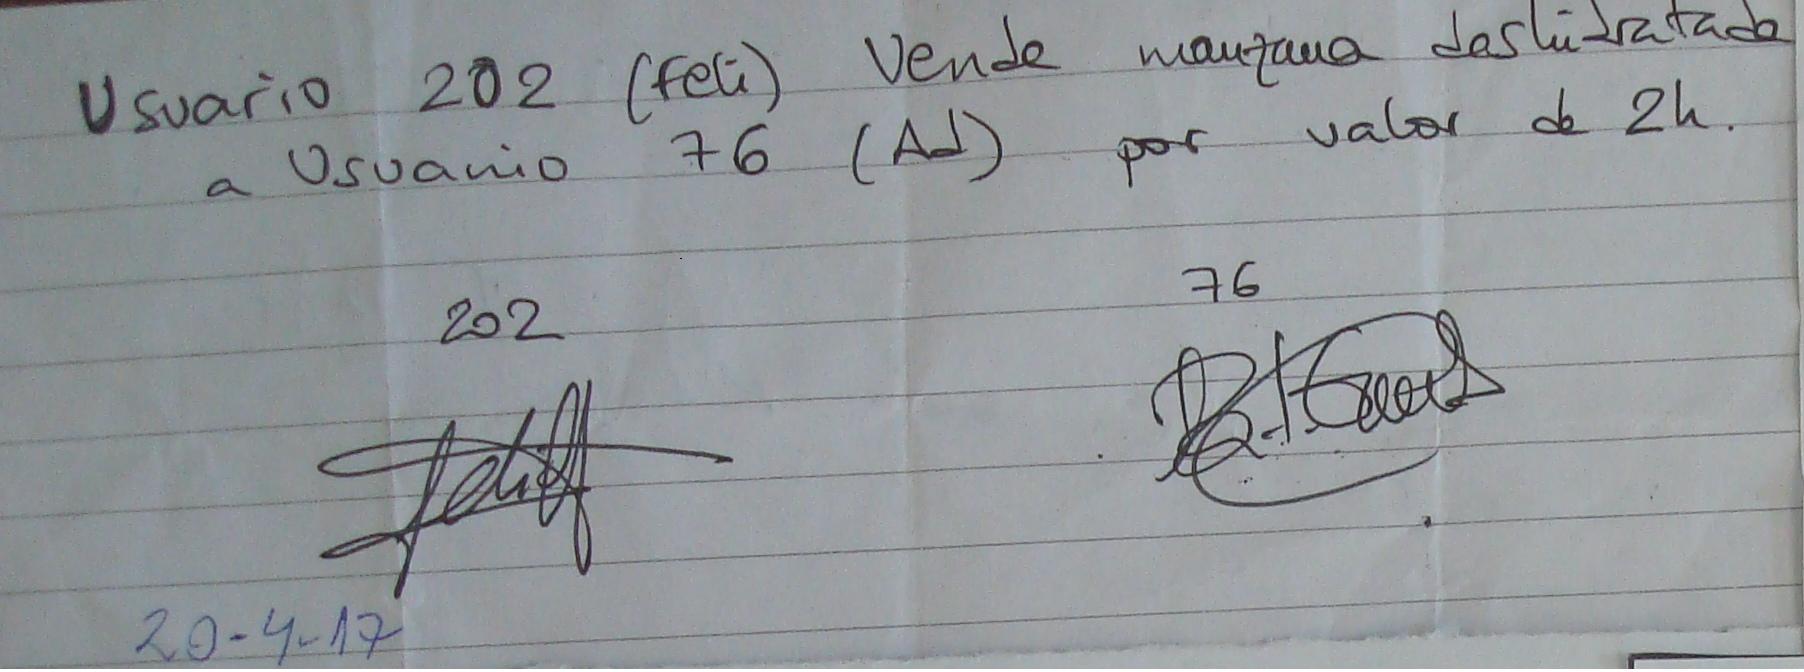 Usuario 202 (Feli) Vende manzana deshidratada
a Usuario 76 (Ad) por valor de 2h.
202
76
20-4-17